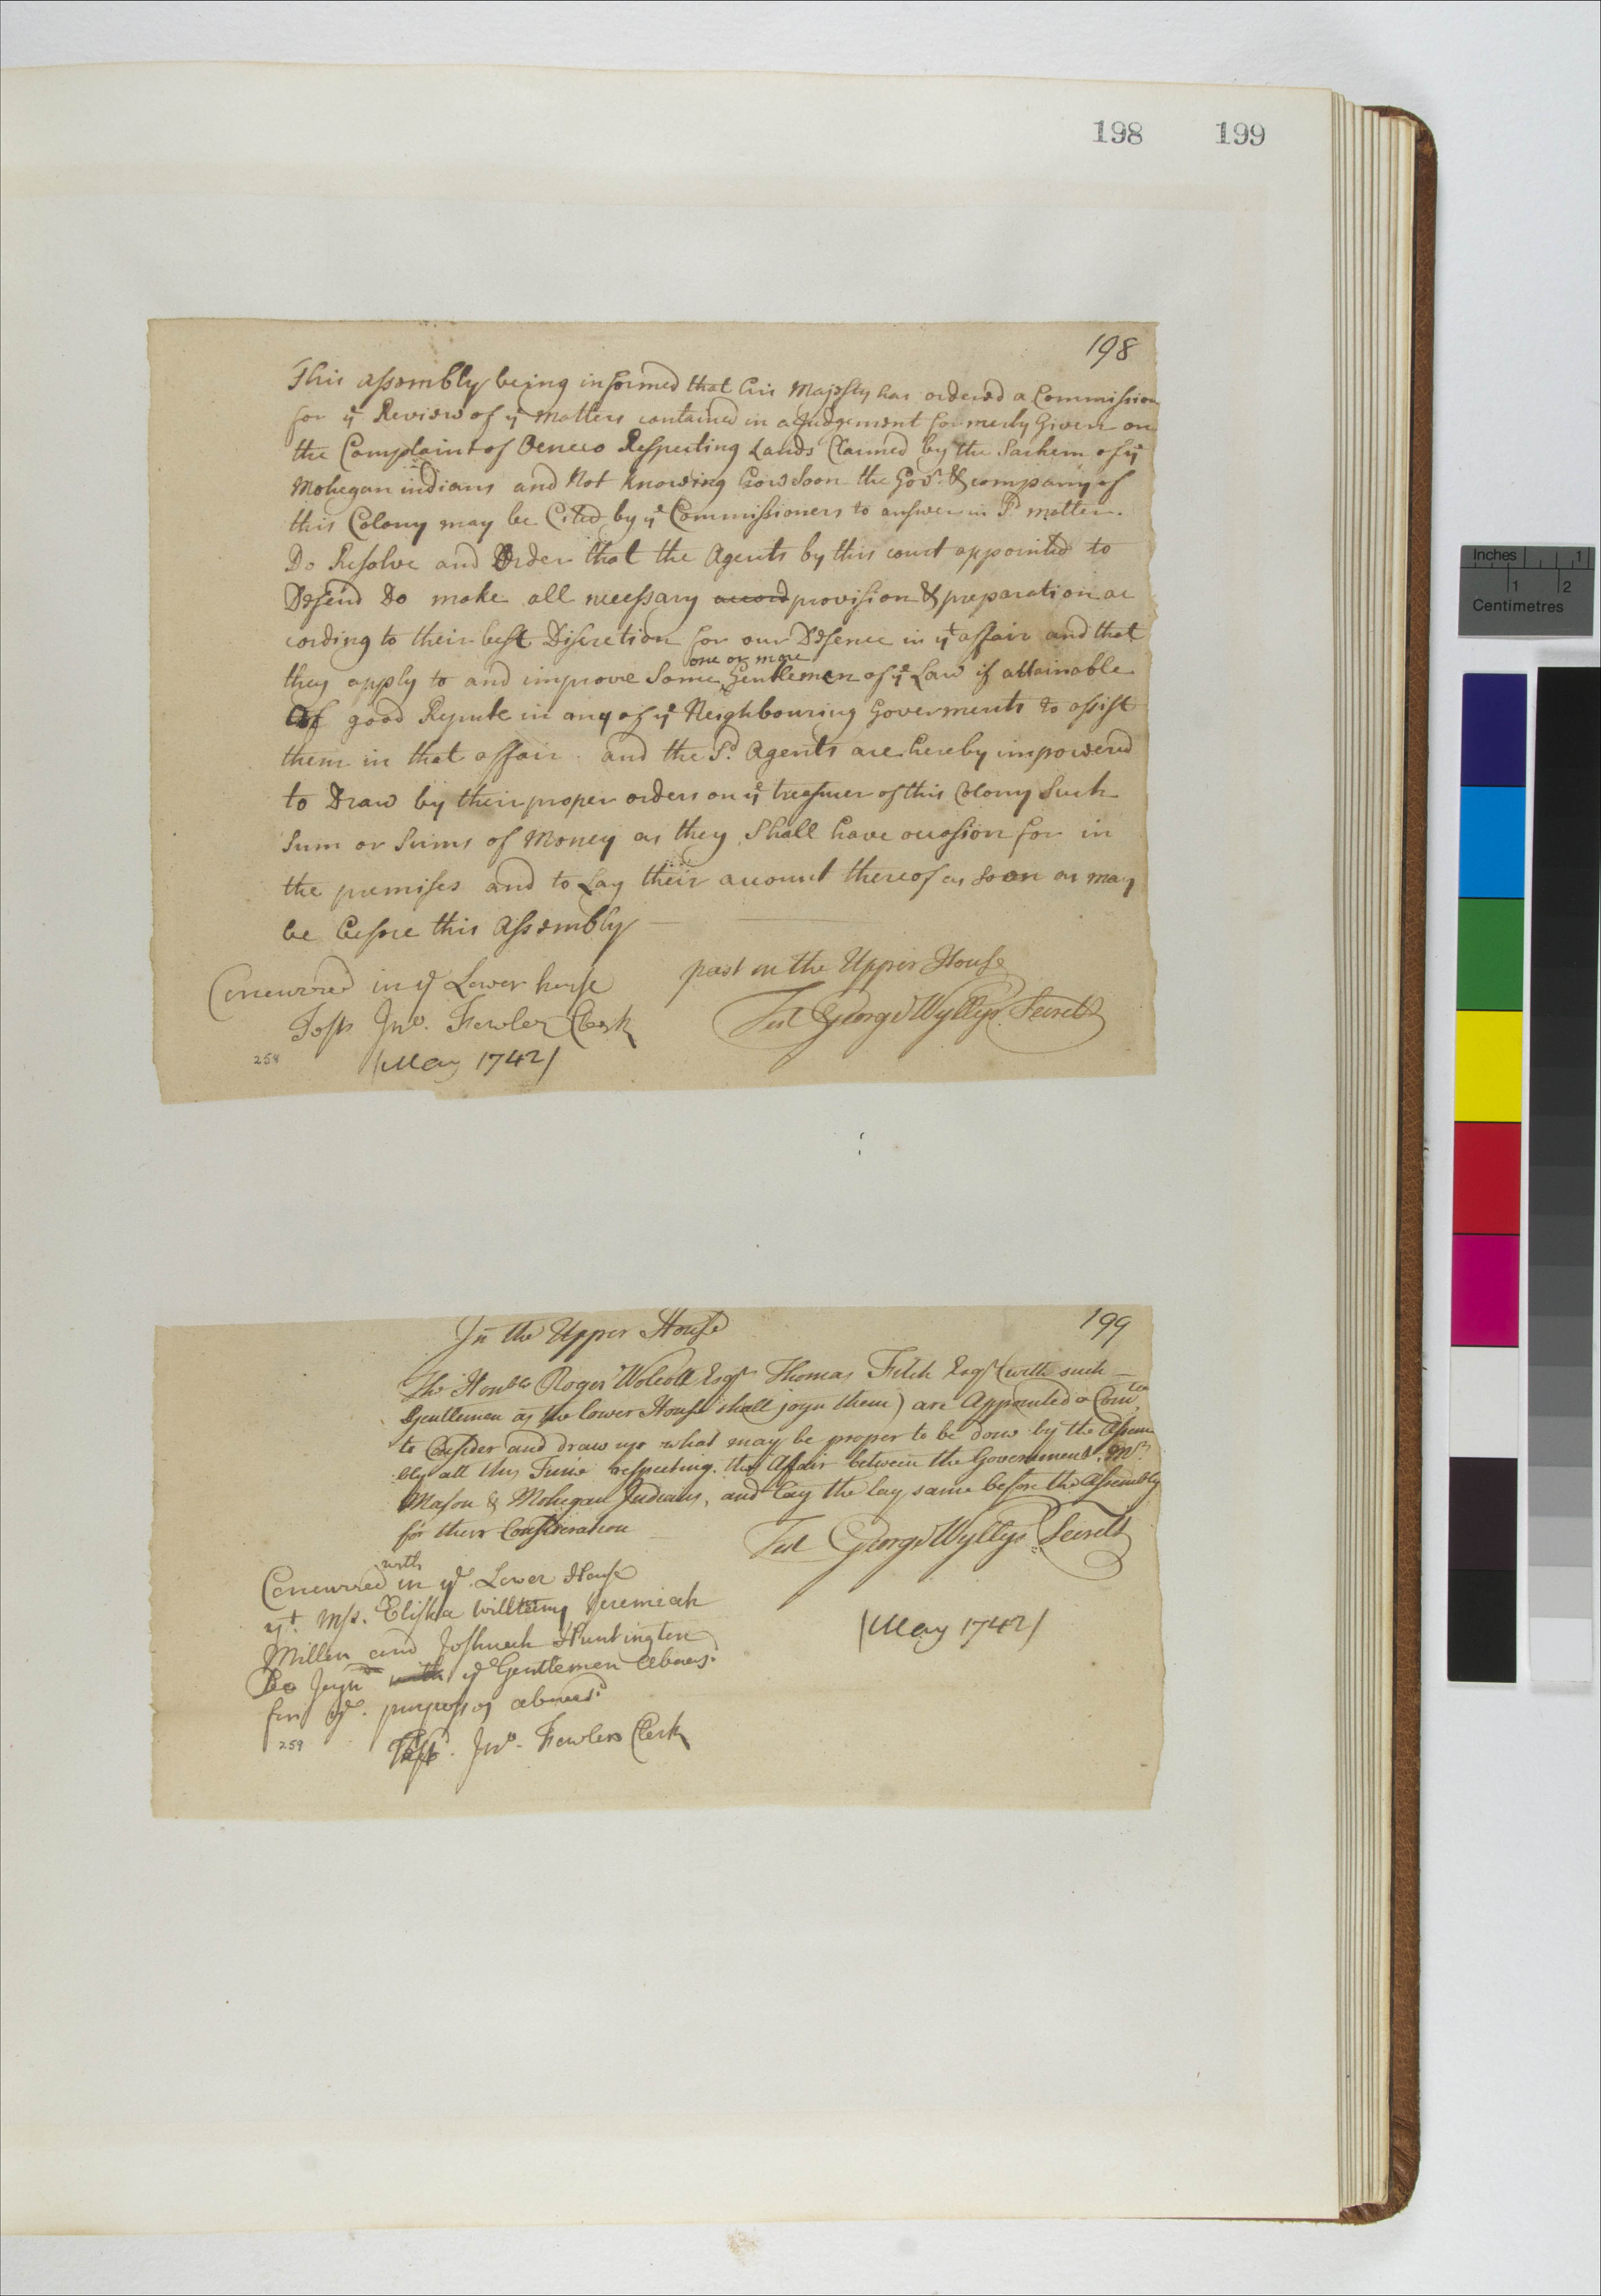 198 199
198
This assembly being informed that his Majesty has ordered a Commission
for ye Review of ye Matters contained in a Judgement formerly Given on
the Complaint of Oeneco Respecting Lands Claimed by the Sachem of ye
Mohegan indians and Not knowing how Soon the Govr. & company of
this Colony may be Cited by ye Commissioners to answer in Sd matter.
Do Resolve and Order that the Agents by this court appointed to
Defend Do make all necessary accord provision & preparation ac
cording to their best Discretion for our Defence in yt affair and that
one or more
they apply to and improve Some Gentlemen of ye Law if attainable
Of good Repute in any of ye Neighbouring Goverments to assist
them in that affair. and the Sd. Agents are hereby impowered
to Draw by their proper orders on ye treasurer of this Colony Such
Sum or Sums of Money as they Shall have occasion for in
the premises and to Lay their account thereof as soon as may
be before this Assembly
past in the Upper House
Concurred in ye Lower house
Test George Wyllys Secretr
Test Jno. Fowler Clerk
258
/May 1742/
199
In the Upper House
The Honble Roger Wolcott Esqr Thomas Fitch Esqr (with such
Gentlemen as the lower House shall joyn them) are Appointed a Comtee
to Consider and draw up what may be proper to be done by the Assem
bly att this Time respecting the Affair between the Government Mr.
Mason & Mohegan Indians, and lay the lay same before the Assembly
for their Consideration
Test George Wyllys Secretr
with
Concurred in ye. Lower House
yt. Mrs. Elisha Williams Jeremiah
/May 1742/
Miller and Joshuah Huntington
Be Joynd with ye Gentlemen aboves.d
for ye. purposes aboves.d
259
Test. Jno. Fowler Clerk
Inches 1
1 2
Centimetres